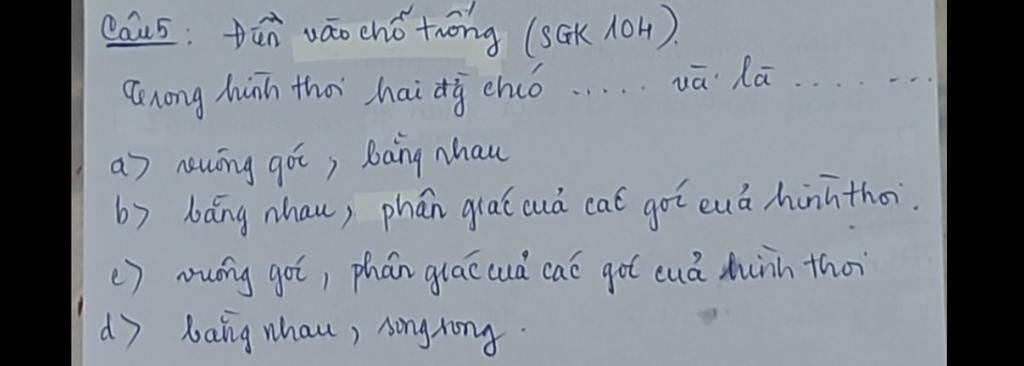 Câu 5: Điền vào chỗ trống (SGK 104)
Trong hình thoi hai đg chéo ..... và là .... ...
a) vuông góc, bằng nhau
b) bằng nhau, phân giác của các góc của hình thoi.
c) vuông góc, phân giác của các góc của hình thoi
d) bằng nhau, song song.